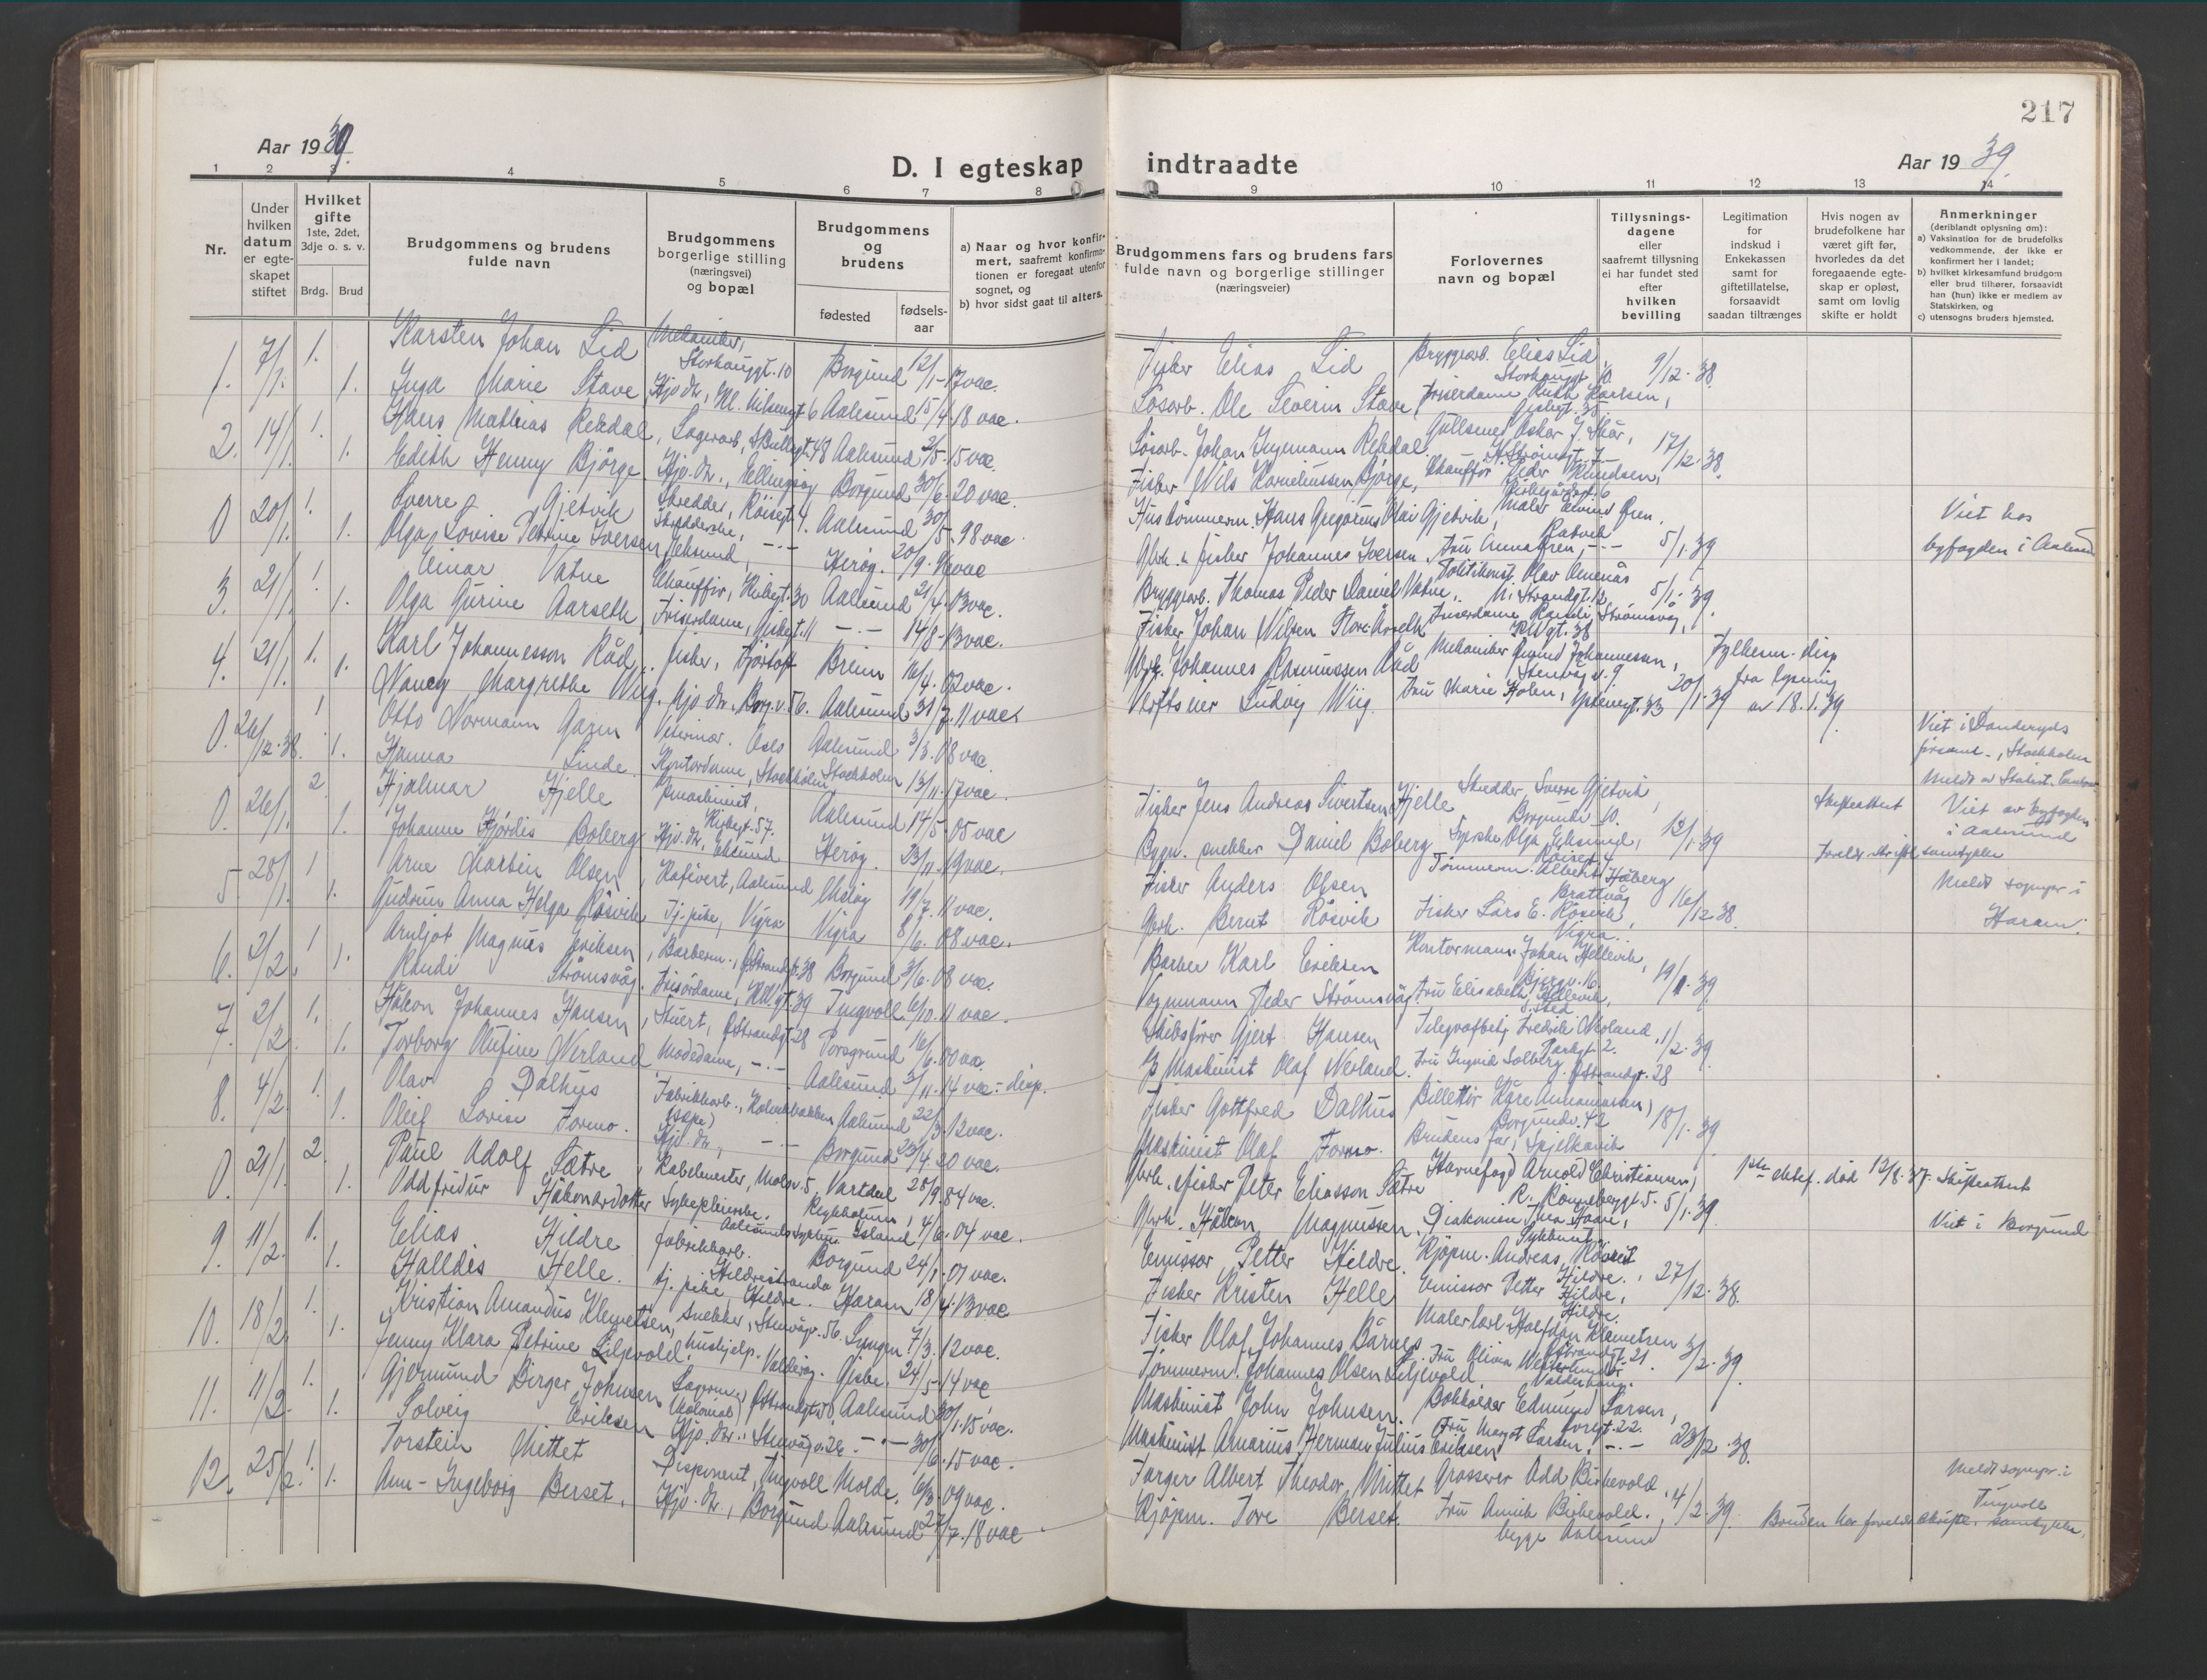 217
Aar 1939.
D. I egteskap indtraadte
Aar 1939.
1 2 3 4 5 6 7 8 9 10 11 12 13 14
Nr.
Under hvilken datum er egteskapet stiftet
Hvilket gifte 1ste, 2det, 3dje o. s. v.
Brdg. Brud
Brudgommens og brudens fulde navn
Brudgommens borgerlige stilling (næringsvei) og bopæl
Brudgommens og brudens
fødested
fødselsaar
a) Naar og hvor konfirmert, saafremt konfirmationen er foregaat utenfor sognet, og
b) hvor sidst gaat til alters.
Brudgommens fars og brudens fars fulde navn og borgerlige stillinger (næringsveier)
Forlovernes navn og bopæl
Tillysningsdagene eller saafremt tillysning ei har fundet sted efter hvilken bevilling
Legitimation for indskud i Enkekassen samt for giftetillatelse, forsaavidt saadan tiltrænges
Hvis nogen av brudefolkene har været gift før, hvorledes da det foregaaende egteskap er opløst, samt om lovlig skifte er holdt
Anmerkninger (deriblandt oplysning om):
a) Vaksination for de brudefolks vedkommende, der ikke er konfirmert her i landet;
b) hvilket kirkesamfund brudgom eller brud tilhører, forsaavidt han (hun) ikke er medlem av Statskirken, og
c) utensogns bruders hjemsted.
1. 7/1. 1. Karsten Johan Lid Mekaniker, Storhauggt. 10 Borgund 12/1-17 vac. Fisker Elias Lid Bryggearb. Elias Lid, Storhauggt. 10. 9/12-38
1. Inga Marie Stave Hjv. dtr., Aalesund 15/4-18 vac. Løsarb. Ole Severin Stave Friserdame Ruth Karlsen,
2. 14/1. 1. Hans Mathias Rekdal, Lagerarb., Aalesund 2/5-15 vac. Løsarb. Johan Ingemann Rekdal. Gullsmed Oskar J. Skår, 17/12-38
1. Edith Henny Bjørge. Hjv. dtr., Ellingsøy Borgund 30/6-20 vac. Fisker Nils Korneliussen Bjørge, Chauffør Peder Knudsen,
0 20/1. 1. Sverre Gjetvik Skredder, Røisegt. 4. Aalesund 30/5-98 vac. Hustømmerm. Hans Gregorius Olai Gjetvik, Maler Eivind Øren, 5/1-39 Viet hos byfogden i Aalesund
1. Olga Lovise Petrine Iversen Herøy. 20/9- vac Gbrk. & fisker Johannes Iversen. Fru Anna Øren, -"-
3. 21/1. 1. Einar Vatne Chauffør, Kirkegt. 30 Aalesund 21/4-13 vac. Bryggearb. Thomas Peder Daniel Vatne, Politikonst. Olav Amenås 5/1-39.
1. Olga Gurine Aarseth, Friserdame, -"- 14/8-13 vac. Fisker Johan Nilsen Friserdame Randi Strømsvåg,
4. 21/1. 1. Karl Johannesson Råd, fisker, Fjørtoft Breim 16/4-02 vac. Gbrk. Johannes Rasmussen Råd Mekaniker Johannessen, Fylkesm. disp fra lysning av 18.1.39.
1. Nancy Margrethe Wiig, Hjv. dtr., Borg.v. 56. Aalesund 31/7-11 vac Ludvig Wiig. Fru Marie Holen, 20/1-39
0. 26/12-38. 1 Otto Normann Gazen Veterinær. Oslo Aalesund 3/3-08 vac. Viet i Danderyds församl., Stockholm
1. Hanna Linde. Kontordame, Stockholm, Stockholm 13/11-17 vac.
0. 26/1. 2. Hjalmar Hjelle Kirkegt. 57. Aalesund 14/5-05 vac Fisker Jens Andreas Sivertsen Hjelle Skredder Sverre Gjetvik, Borgundv. 10. 12/1-39 Skifteattest Viet av byfogden i Aalesund
1. Johanne Hjørdis Boberg, Hjv. dtr., Herøy. 23/11-19 vac. Bygn. snekker Daniel Boberg foreldr. skriftl. samtykke
5 28/1. 1 Arne Martin Olsen, Aalesund 19/7-11 vac. Fisker Anders Olsen Tømmerm. Albert Håberg Brattvåg 16/12-38 Meldt sognepr. i Haram.
1. Gudrun Anna Helga Røsvik Tj. pike, Vigra Vigra 8/6-08 vac. Gbrk. Bernt Røsvik Fisker Lars E. Røsvik, Vigra.
6. 2/2. 1 Arnljot Magnus Eriksen, Barberm., Borgund 3/6-08 vac. Barber Karl Eriksen Kontormann Johan Hellevik, 19/1-39.
1. Randi Strømsvåg. Frisørdame, Tingvoll 6/10-11 vac. Vognmann Peder Strømsvåg. Fru Elisabeth Hellevik,
7. 2/2. 1. Håkon Johannes Hansen, Stuert, Porsgrund 16/6-00 vac. Skibsfører Gjert Hansen Telegrafbetj. Fredrik Nerland, Parkgt. 2. 1/2-39.
1. Torborg Rufine Nerland Modedame, -"- Aalesund 3/11-14 vac - disp. Maskinist Olaf Nerland. Fru Ingrid Solberg.
8. 4/2. 1. Olav Dalhus Fabrikkarb., Aalesund 22/3-12 vac. Fisker Gottfred Dalhus Billettør Kåre Annaniassen, Borgundv. 42. 18/1-39.
1. Oleif Lovise Formo. Hjv. dtr., -"- Borgund 23/4-20 vac. Maskinist Olaf Formo. Brudens far, Spjelkavik
0. 21/1. 2. Paul Adolf Sætre, Kabelmester, Vartdal 28/9-84 vac. Gbrk. & fisker Peter Eliassen Sætre Havnefogd Arnold Christiansen, 5/1-39 død 12/8-37. Skifteattest
1. Oddfridur Håkonardotter Sykepleierske, Reykholum, Island 4/6-04 vac. Gbrk. Håkon Magnussen, Viet i Borgund
9. 11/2. 1. Elias Hildre fabrikkarb. Hildrestranda Borgund 24/1-07 vac. Emissær Petter Hildre. Kjøpm. Andreas Hildre. 27/12-38.
1. Halldis Helle. tj. pike, Hildre. Haram 18/4-13 vac Fisker Kristen Helle Emissær Petter Hildre, Hildre.
10. 18/2. 1. Kristian Amandus Klemetsen, Snekker, Lyngen 7/3-12 vac. Fisker Olaf Johannes Bårnes Halfdan Klemetsen 3/2-39.
1. Jenny Klara Petrine Liljevold. Hushjelp. Valderøy. Giske. 24/5-14 vac Tømmerm. Johannes Olsen Liljevold. Fru Olivia
11. 11/2. 1. Gjermund Birger Johnsen Lagerm. (Kolonial) Aalesund 30/1-15 vac. Maskinist John Johnsen. Bokholder Edmund Larsen, 23/12-38.
1. Solveig Eriksen Hjv. dtr., -"- 30/6-15 vac. Maskinist Amarius Herman Julius Eriksen Fru Margot Larsen. -"-
12. 25/2. 1. Torstein Mittet Disponent, Tingvoll Molde. 6/3-09 vac. Farger Albert Theodor Mittet Grosserer Odd Birkevold, 4/2-39. Meldt sognepr. i Tingvoll
1. Ann-Ingeborg Berset, Hjv. dtr., Borgund Aalesund 27/7-18 vac Kjøpm. Tore Berset. Fru Annik Birkevold. begge Aalesund Bruden har foreldr. skriftl. samtykke.